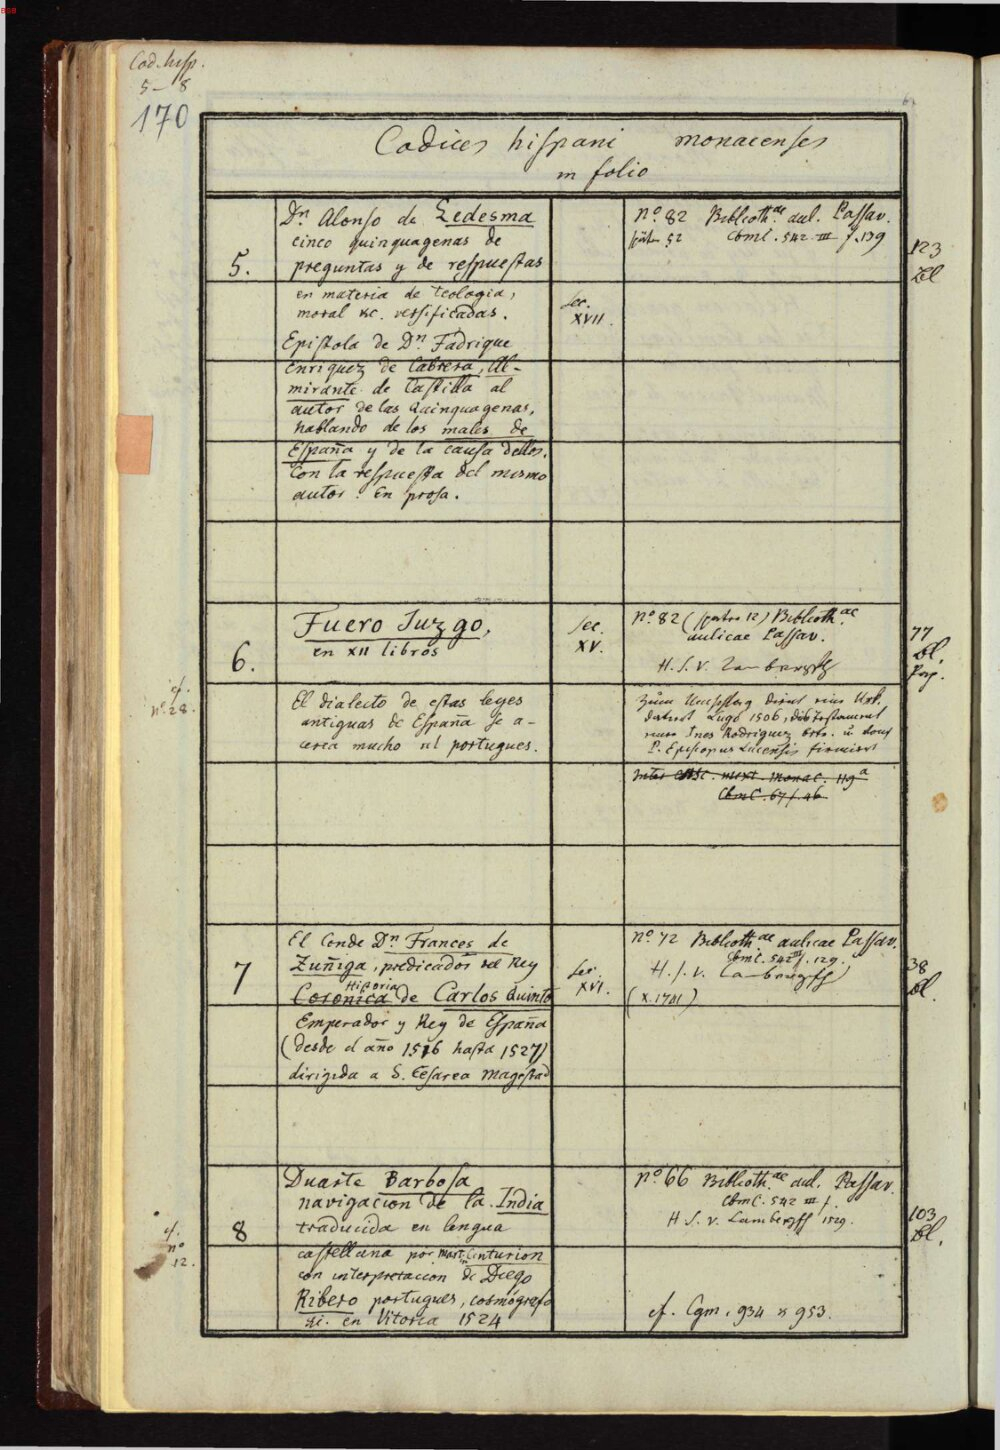 BSB
Cod. hisp.
5-8
170
Codices hispani monacenses
in folio
5.
Dn. Alonso de Ledesma
cinco quinquagenas de
preguntas y de respuestas
en materia de Teologia,
moral &c. versificadas.
Epistola de Dn. Fadrique
Enriquez de Cabrera, Al-
mirante de Castilla al
autor de las Quinquagenas,
hablando de los males de
España y de la causa dellos.
Con la respuesta del mismo
autor. En prosa.
Sec.
XVII.
No. 82 Biblioth.ae aul. Passav.
später 52 Cbml. 542 III f. 139
123
Bl
6.
cf.
no. 28.
Fuero Juzgo,
en XII libros
El dialecto de estas leyes
antiguas de España se a-
cerca mucho al portugues.
Sec.
XV.
No. 82 (später 12) Biblioth.ae
aulicae Passav.
H. S. V.
Zum Umschlag dient eine Urk.
datirt Lugo 1506, das Testament
einer Ines Rodriguez
P. Episcopus Lucensis
Inter monac. 119a
Cbml. 67 f. 46
77
Bl.
Perg.
7
El Conde Dn. Frances de
Zuñiga, predicador del Rey
Historia
Coronica de Carlos Quinto
Emperador y Rey de España
(desde el año 1516 hasta 1527)
dirigida a S. Cesarea Magestad
Sec.
XVI.
No. 72 Biblioth.ae aulicae Passav.
Cbml. 542 III f. 129.
H. S. V.
(X. 1701)
38
Bl.
8
cf.
no
12.
Duarte Barbosa
navigacion de la India
traducida en lengua
castellana por Mart. Centurion
con interpretacion de Diego
Ribero portugues, cosmógrafo
en Vitoria 1524
No. 66 Biblioth.ae aul. Passav.
Cbml. 542 III f.
H. S. V. Lamberg 1529.
cf. Cgm. 934 & 953.
103
Bl.